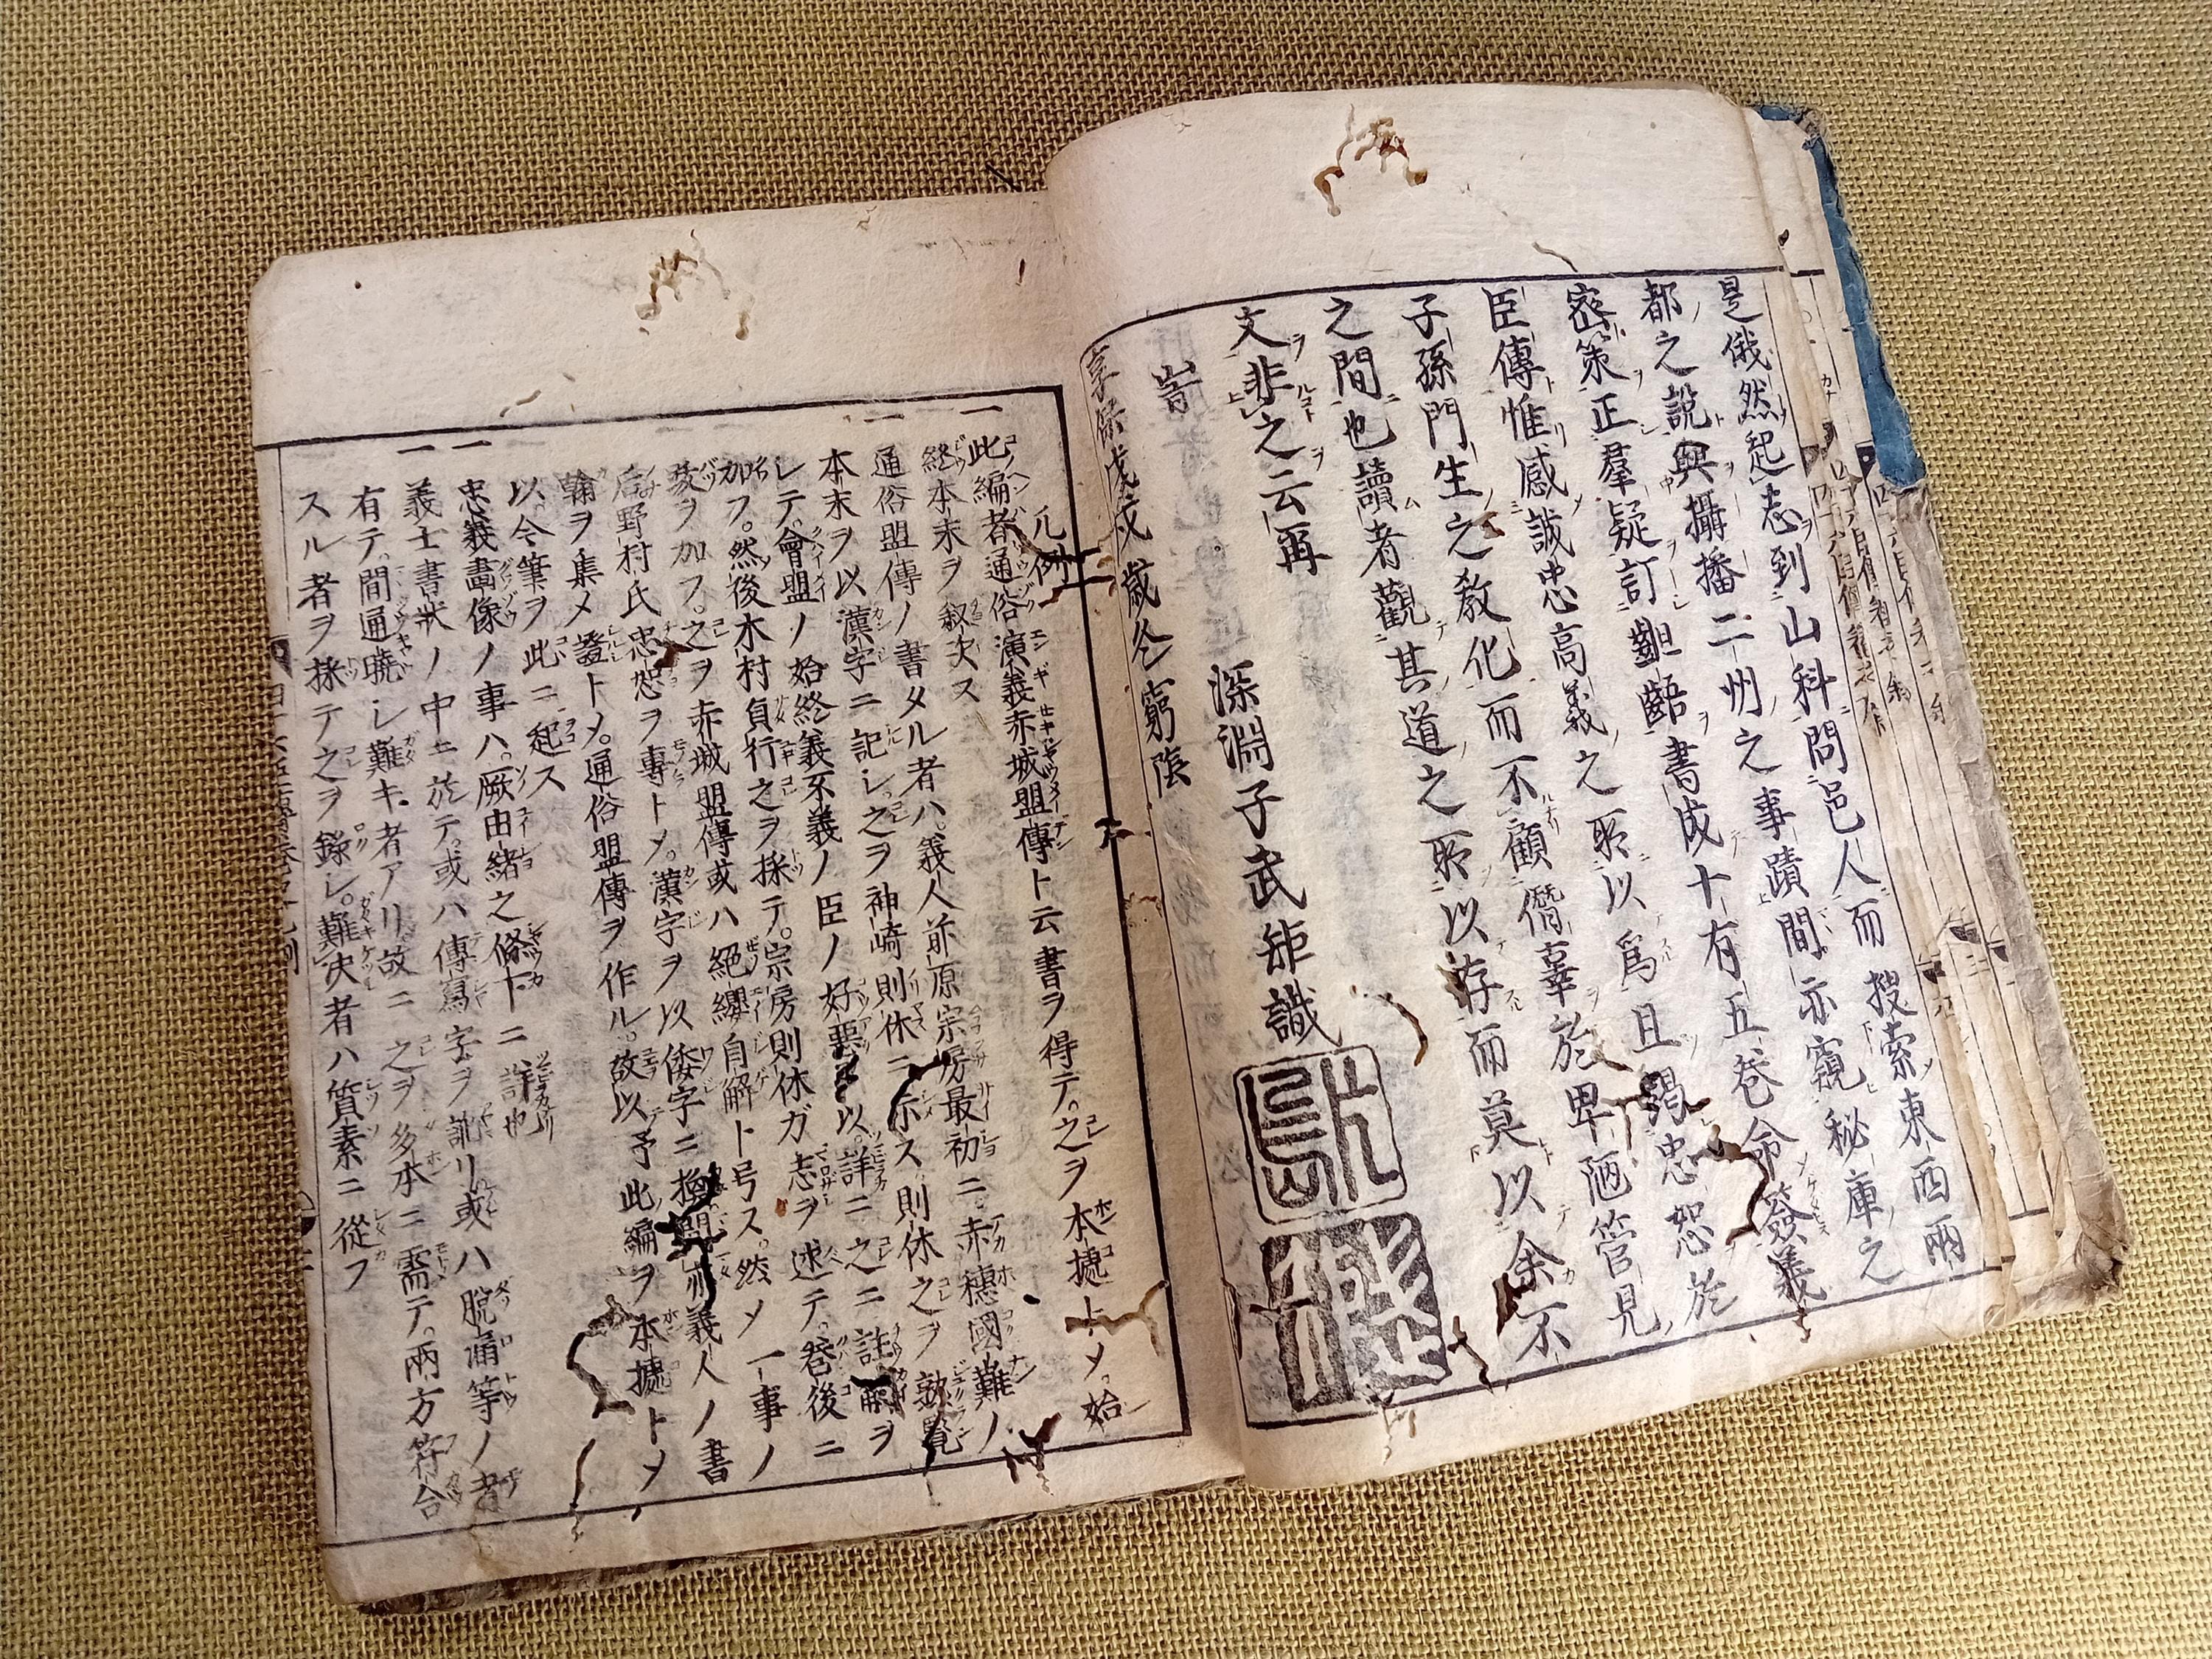 是俄然起志到山科問邑人而搜索東西兩
都之說與攝播二州之事蹟間亦窺秘庫之
密策正羣疑訂齟齬書成十有五卷命簽義
臣傳惟感誠忠高義之所以爲且竭忠恕於
子孫門生之敎化而不顧僭辜於卑陋管見
之間也讀者觀其道之所以存而莫以余不
文非之云再
旹
享保戊戌歲仌窮陰
深淵子武矩識
凡例
一此編者通俗演義赤城盟傳ト云書ヲ得テ。之ヲ本據トメ。始
終本末ヲ叙次ス
一通俗盟傳ノ書タル者ハ。義人前原宗房最初ニ赤穗國難ノ
本末ヲ以漢字ニ記シ。之ヲ神崎則休ニ示ス。則休之ヲ熟覽
レテ。會盟ノ始終義不義ノ臣ノ好惡ヲ以。詳ニ之ニ註解ヲ
加フ。然後木村貞行之ヲ採テ。宗房則休ガ志ヲ述テ。卷後ニ
跋ヲ加フ。之ヲ赤城盟傳或ハ絕纓自解ト号ス。然メ一事ノ
后野村氏忠恕ヲ專トメ。漢字ヲ以倭字ニ換間亦義人ノ書
翰ヲ集メ證トメ。通俗盟傳ヲ作ル。故以予此編ヲ本據トメ
以。今筆ヲ此ニ起ス
一忠義畵像ノ事ハ。厥由緒之條下ニ詳也
一義士書狀ノ中ニ於テ。或ハ傳寫字ヲ訛リ。或ハ脫漏等ノ者
有テ。間通曉シ難キ者アリ故ニ之ヲ多本ニ需テ。兩方符合
スル者ヲ採テ之ヲ錄シ。難决者ハ質素ニ從フ